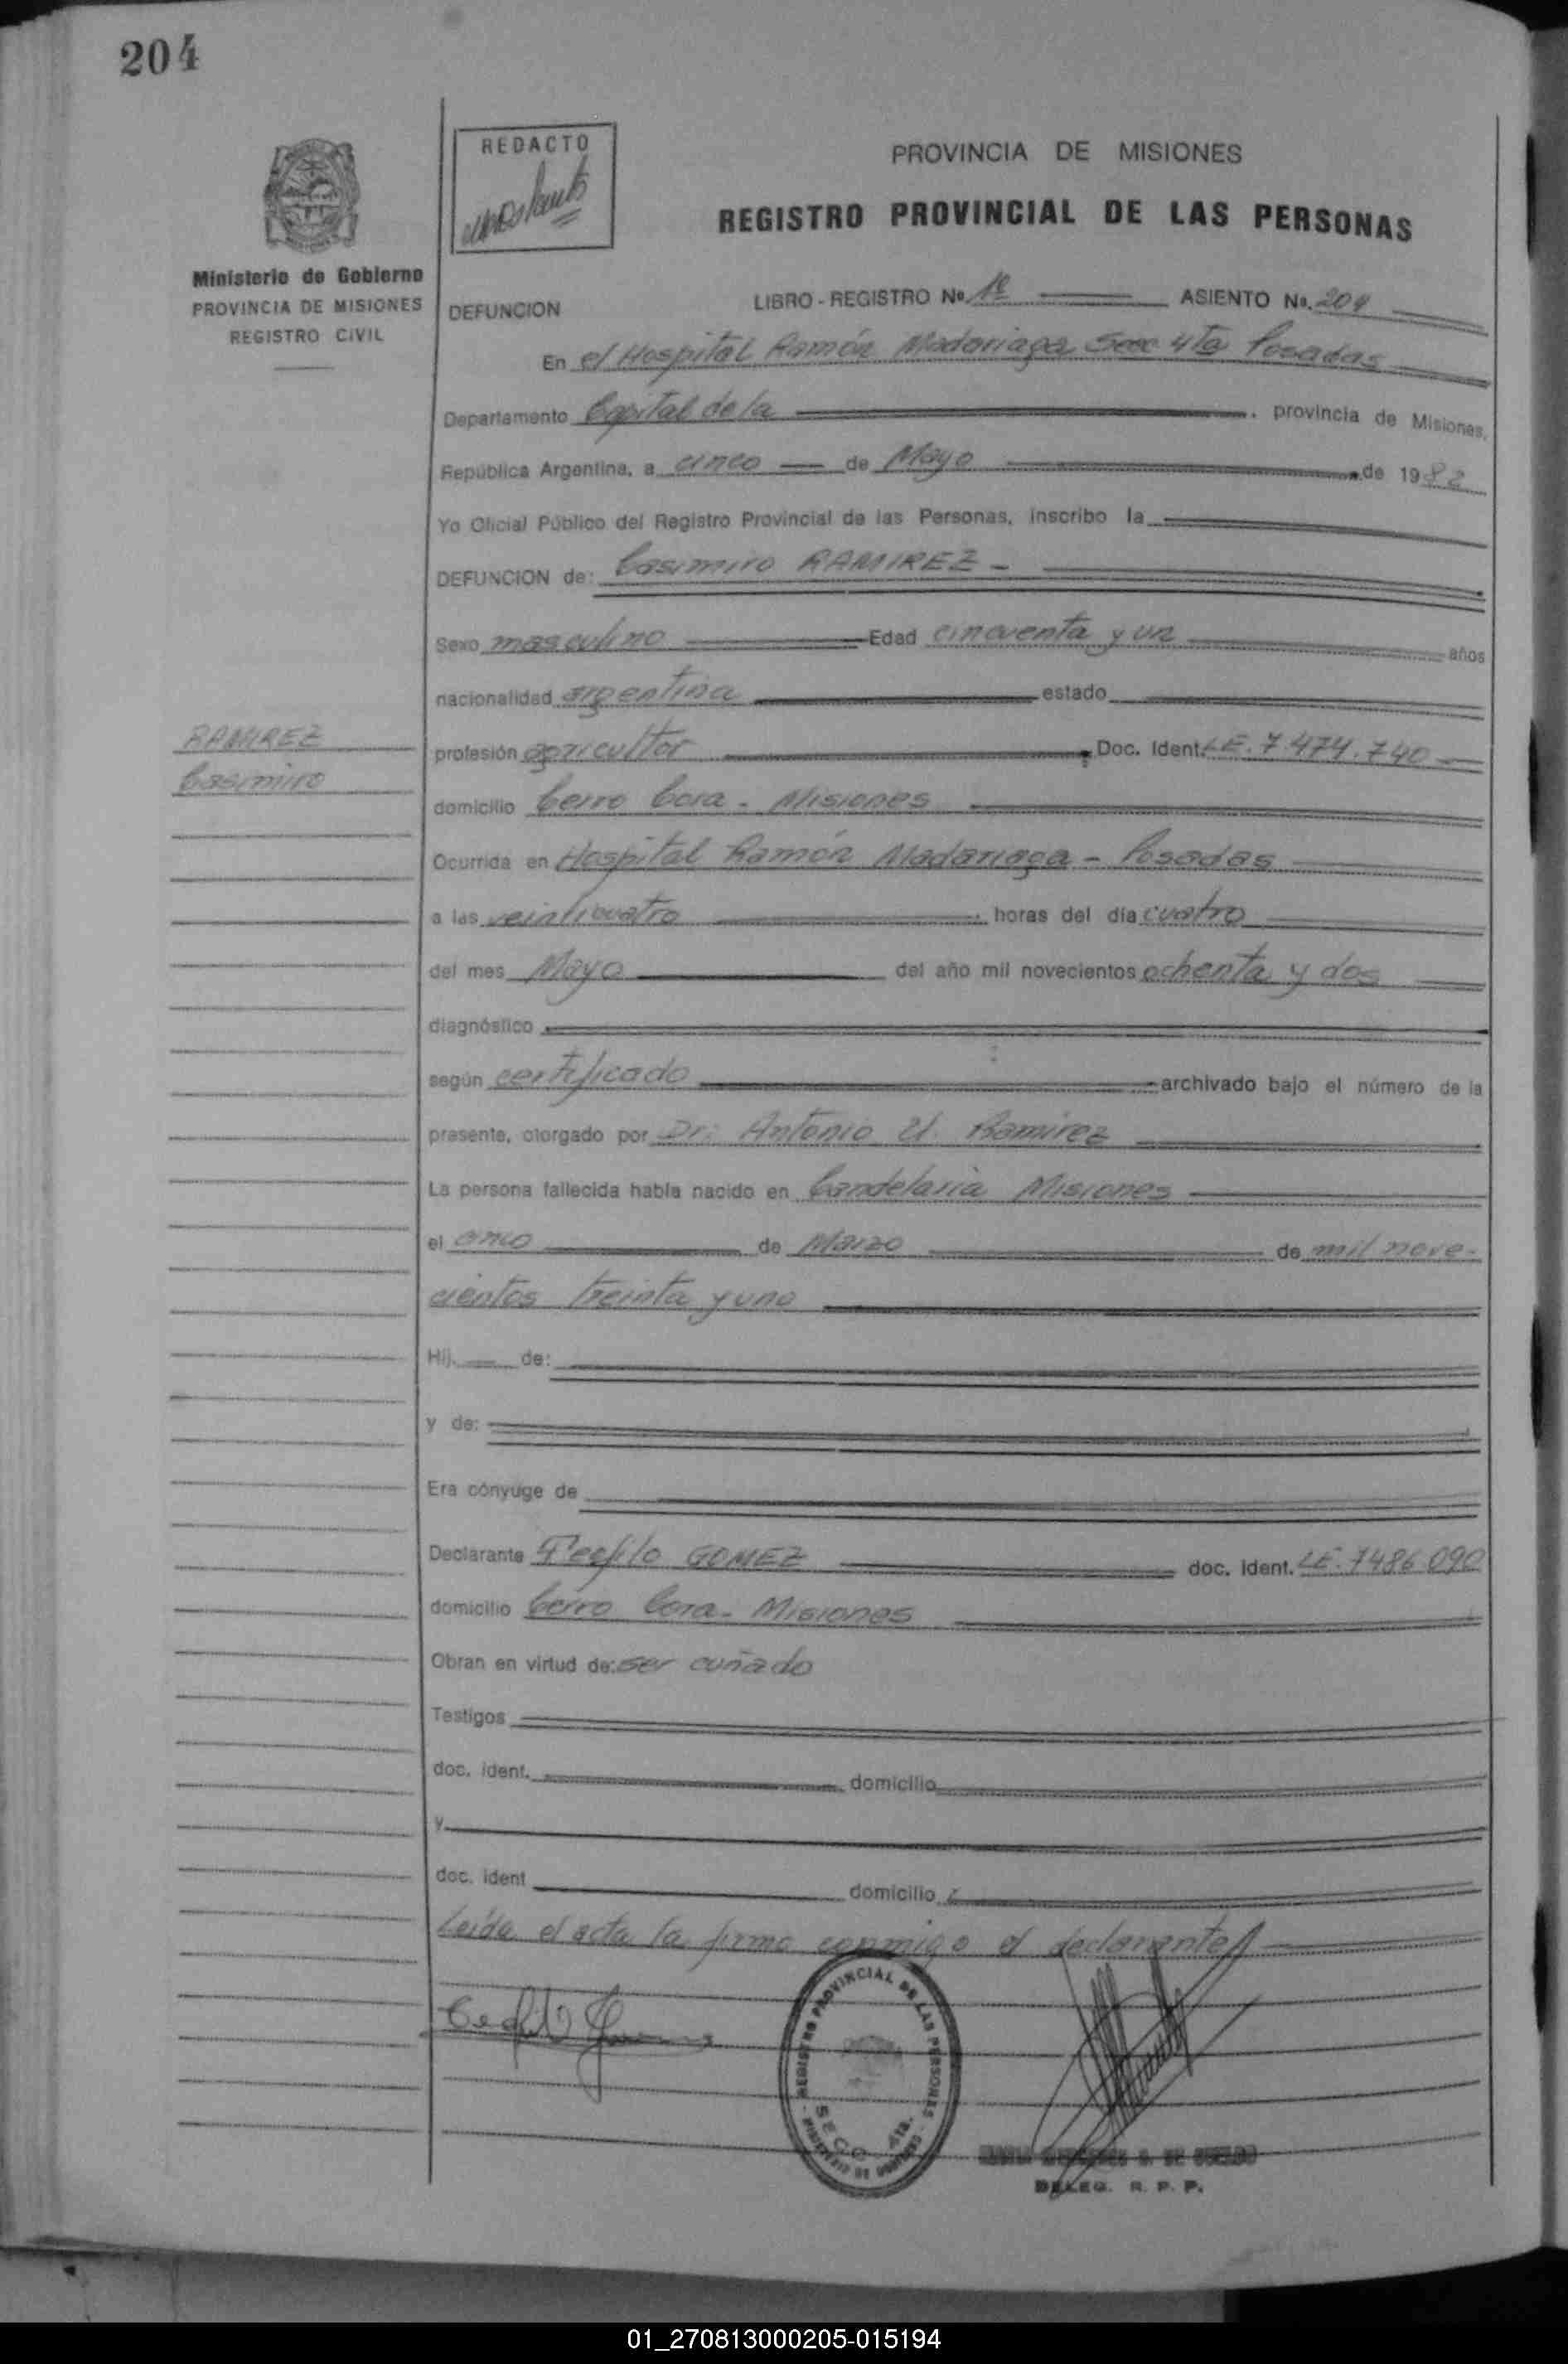 204
REDACTO
PROVINCIA DE MISIONES
REGISTRO PROVINCIAL DE LAS PERSONAS
Ministerio de Gobierno
PROVINCIA DE MISIONES
REGISTRO CIVIL
DEFUNCION LIBRO - REGISTRO No. 1º ASIENTO No. 204
En el Hospital Ramón Madariaga Secc 4ta Posadas
Departamento Capital de la provincia de Misiones,
República Argentina, a cinco de Mayo de 1982
Yo Oficial Público del Registro Provincial de las Personas, inscribo la
DEFUNCION de: Casimiro RAMIREZ -
Sexo masculino Edad cincuenta y un años
nacionalidad argentina estado
RAMIREZ
Casimiro
profesión agricultor Doc. Ident. LE. 7.474.740
domicilio Cerro Cora - Misiones
Ocurrida en Hospital Ramón Madariaga - Posadas
a las veinticuatro horas del día cuatro
del mes Mayo del año mil novecientos ochenta y dos
diagnóstico
según certificado archivado bajo el número de la
presente, otorgado por Dr. Antonio U. Ramirez
La persona fallecida había nacido en Candelaria Misiones
el cinco de Marzo de mil nove-
cientos treinta y uno
Hij. de:
y de:
Era cónyuge de
Declarante Teofilo GOMEZ doc. ident. LE. 7486.090
domicilio Cerro Cora - Misiones
Obran en virtud de: ser cuñado
Testigos
doc. ident. domicilio
y
doc. ident domicilio
Leída el acta la firma conmigo el declarante
REGISTRO PROVINCIAL DE LAS PERSONAS
SECC. 4TA.
MINISTERIO DE GOBIERNO
DELEG. R. P. P.
01_270813000205-015194